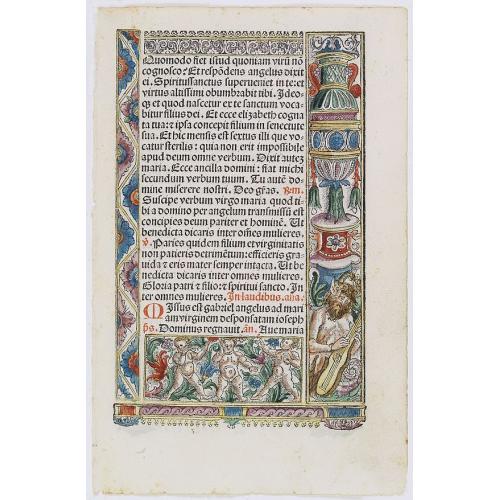 Quomodo fiet istud quoniam virũ nõ
cognosco? Et respõdens angelus dixit
ei. Spiritussanctus superueniet in te: et
virtus altissimi obumbrabit tibi. Ideo-
qʒ et quod nascetur ex te sanctum voca
bitur filius dei. Et ecce elizabeth cogna
ta tua: ⁊ ipsa concepit filium in senectute
sua. Et hic mensis est sextus illi que vo-
catur sterilis: quia non erit impossibile
apud deum omne verbum. Dixit autez
maria. Ecce ancilla domini: fiat michi
secundum verbum tuum. Tu autẽ do-
mine miserere nostri. Deo grãs.
Suscipe verbum virgo maria quod ti-
bi a domino per angelum transmissũ est
concipies deum pariter et hominẽ. Ut
benedicta dicaris inter oĩnes mulieres.
v̕. Paries quidem filium et virginitatis
non patieris detrimẽtum: efficeris gra-
uida ⁊ eris mater semper intacta. Ut be-
nedicta dicaris inter omnes mulieres.
Gloria patri ⁊ filio: et spiritui sancto. In
ter omnes mulieres. In laudibus. aña.
Missus est gabriel angelus ad mari
am virginem desponsatam ioseph
p̃s. Dominus regnauit. añ. Aue maria